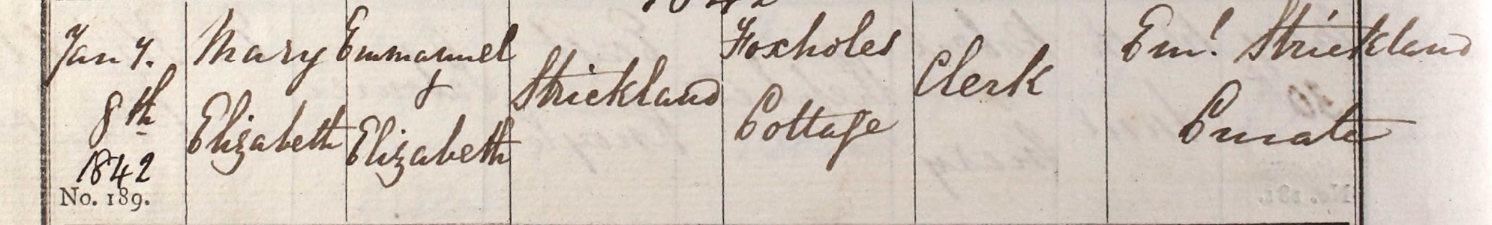 Jany.
8th
1842
No. 189.
Mary
Elizabeth
Emmanuel
&
Elizabeth
Strickland
Foxholes
Cottage
Clerk
Eml. Strickland
Curate